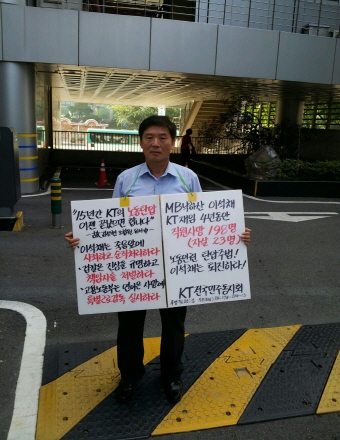 "15년간 KT의 노동탄압
이젠 끝났으면 합니다"
이석채는 죽음앞에
사죄하고 순직처리하라
· 검찰은 진실을 규명하고
책임자를 처벌하라
· 고용노동부는 연이은 사망에
특별근로감독 실시하라
MB낙하산 이석채
KT 재임 4년동안
직원사망 198명
(자살 23명)
노동인권 탄압주범!
이석채는 퇴진하라!
KT 전국민주동지회